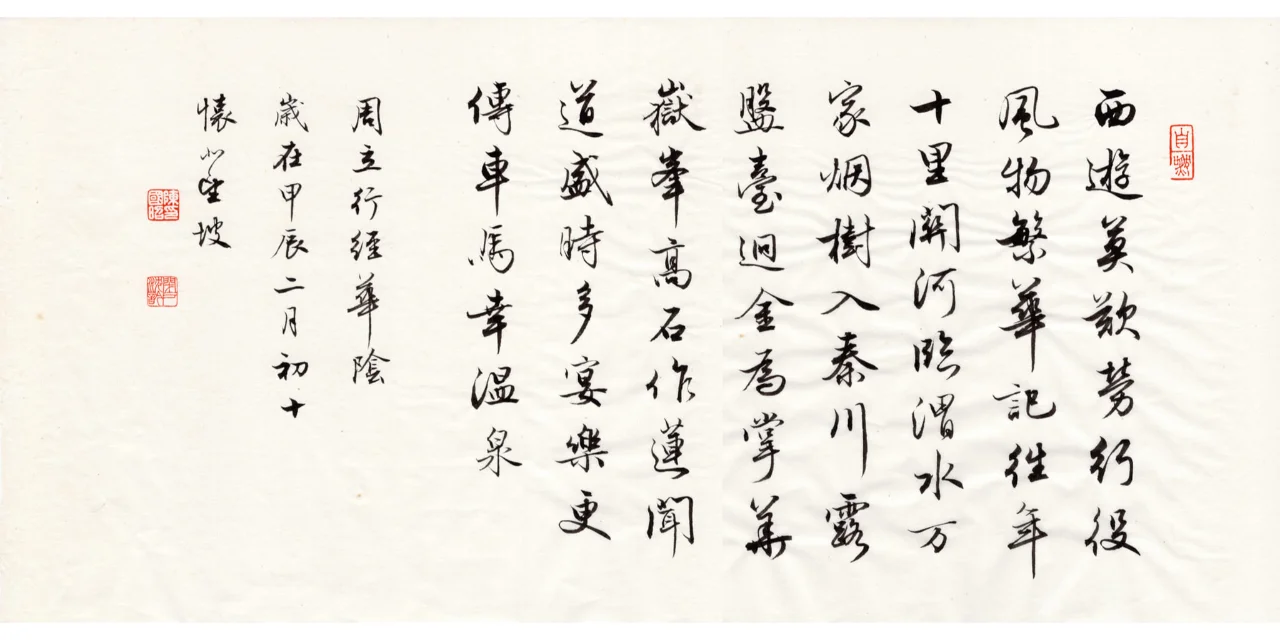 西遊莫歎勞行役
風物繁華記往年
十里關河臨渭水万
家烟樹入秦川露
盤臺迥金為掌華
嶽峯高石作蓮聞
道盛時多宴樂更
傳車馬幸溫泉
周立行經華陰
歲在甲辰二月初十
懷冰坡